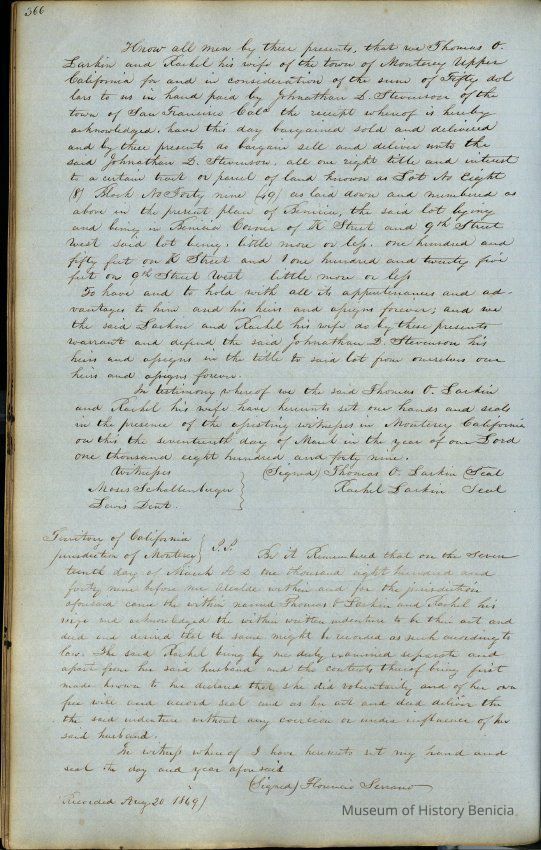 366
Know all men by these presents, that we Thomas O.
Larkin and Rachel his wife of the town of Monterey Upper
California for and in consideration of the sum of Fifty dol
lars to us in hand paid by Johnathan D. Stevenson of the
town of San Francisco Cala the receipt whereof is hereby
acknowledged. have this day bargained sold and delivered
and by these presents do bargain sell and deliver unto the
said Johnathan D. Stevenson, all our right title and interest
to a certain tract or parcel of land known as Lot No Eight
(8) Block No Forty nine (49) as laid down and numbered as
above in the present plan of Benicia, the said lot lying
and being in Benicia Corner of K Street and 9th Street
West said lot being, little more or less, one hundred and
fifty feet on K Street and one hundred and twenty five
feet on 9th Street West little more or less
To have and to hold with all its appurtenances and ad-
vantages to him and his heirs and assigns forever; and we
the said Larkin and Rachel his wife do by these presents
warrant and defend the said Johnathan D. Stevenson his
heirs and assigns in the title to said lot from ourselves our
heirs and assigns forever.
In testimony whereof we the said Thomas O. Larkin
and Rachel his wife have hereunto set our hands and seals
in the presence of the attesting witnesses in Monterey California
on this the seventeenth day of March in the year of our Lord
one thousand eight hundred and forty nine.
Witnesses (Signed) Thomas O. Larkin Seal
Moses Schallenberger Rachel Larkin Seal
Lewis Dent.
Territory of California
jurisdiction of Monterey } S.S. Be it Remembered that on the Seven
teenth day of March A D One thousand eight hundred and
forty nine before me Alcalde within and for the jurisdiction
aforesaid came the within named Thomas O Larkin and Rachel his
wife and acknowledged the within written indenture to be their act and
deed and desired that the same might be recorded as such according to
law. The said Rachel being by me duly examined separate and
apart from her said husband and the contents thereof being first
made known to her declared that she did voluntarily and of her own
free will and accord seal and as her act and deed deliver the
the said indenture without any coercion or undue influence of her
said husband.
In witness whereof I have hereunto set my hand and
seal the day and year aforesaid
(Signed) Florencio Serrano
Recorded Aug 20 1869
Museum of History Benicia